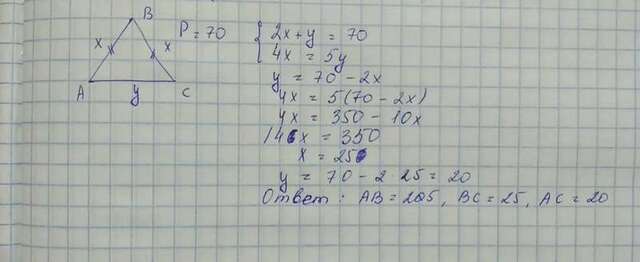 B
P = 70
x x
A y C
2x + y = 70
4x = 5y
y = 70 - 2x
4x = 5(70 - 2x)
4x = 350 - 10x
14x = 350
x = 25
y = 70 - 2 25 = 20
Ответ: AB = 25, BC = 25, AC = 20